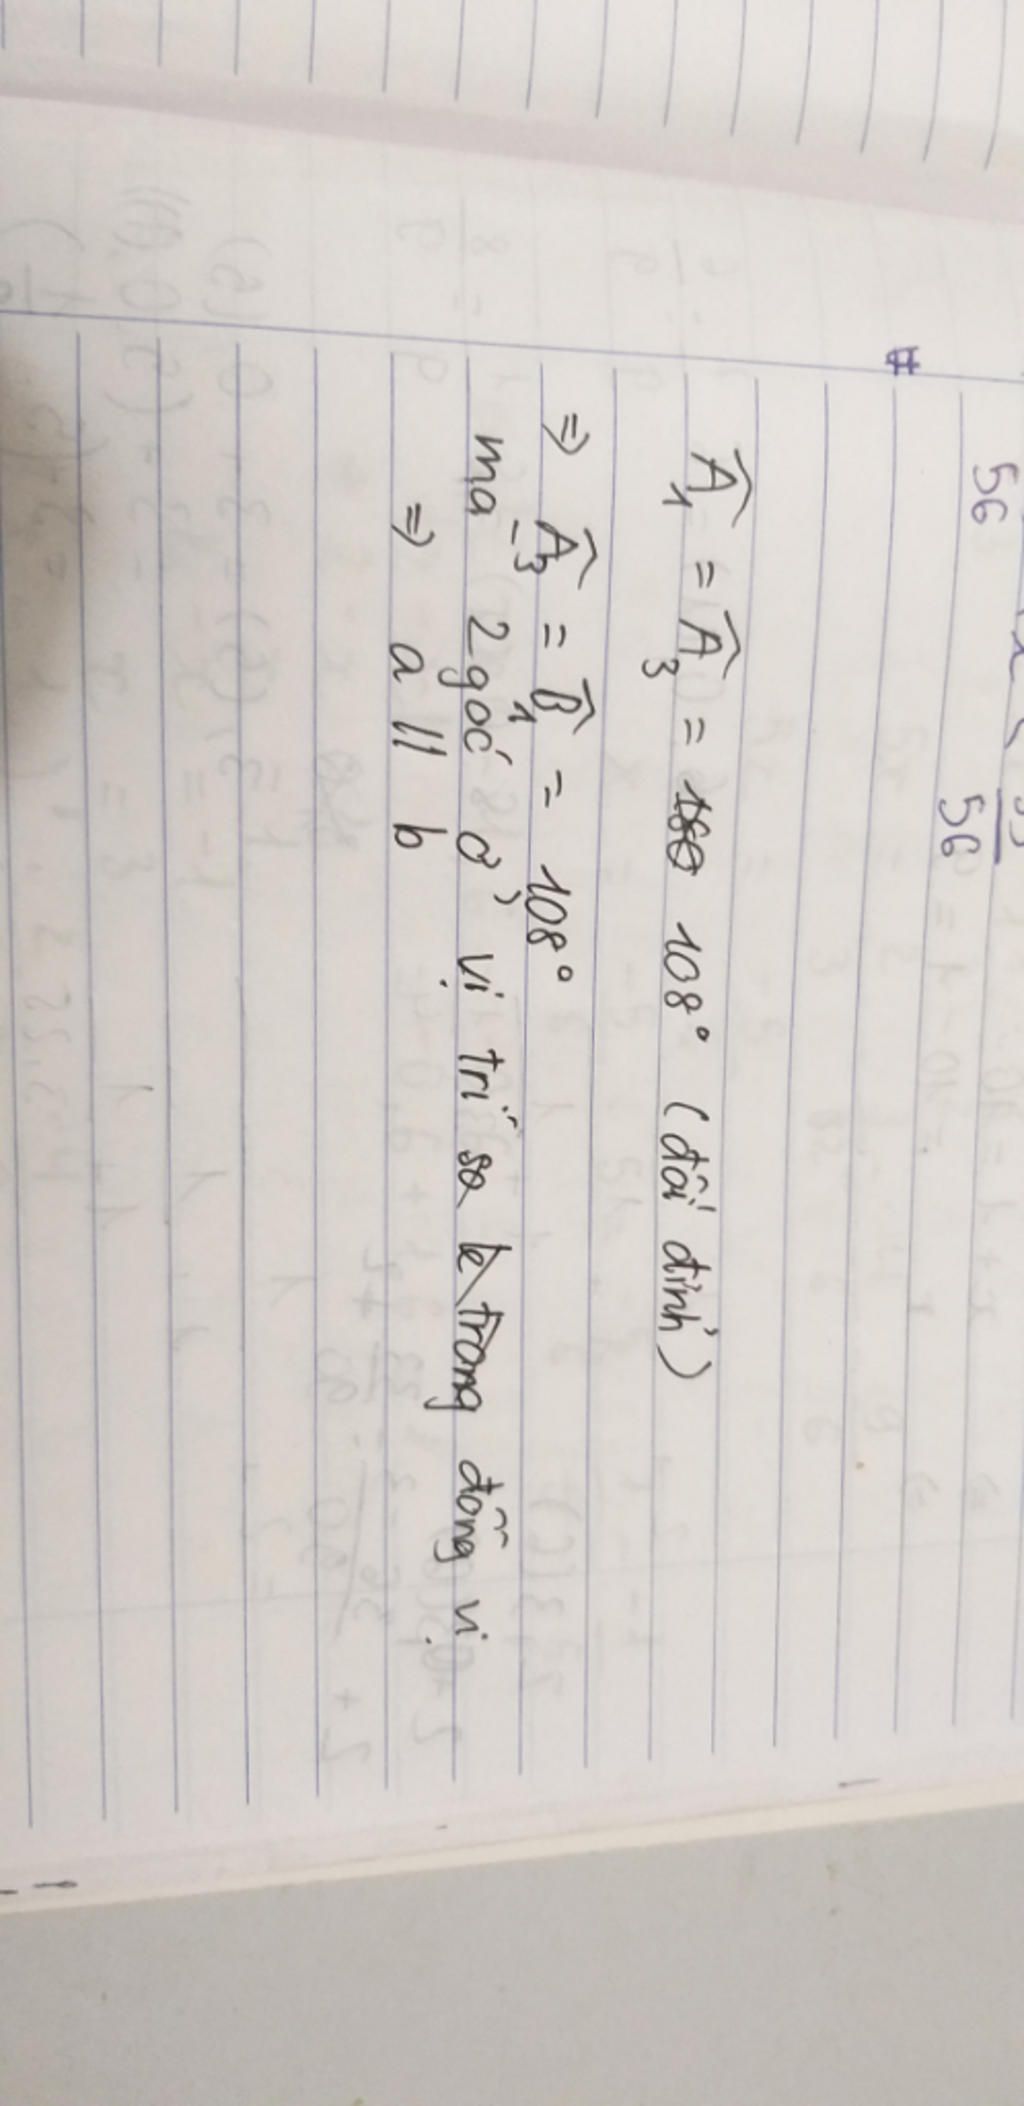 56
56
#
Â₁ = Â₃ = 108° (đối đỉnh)
⇒ Â₃ = B̂₁ = 108°
mà 2 góc ở vị trí so le trong đồng vị
⇒ a // b